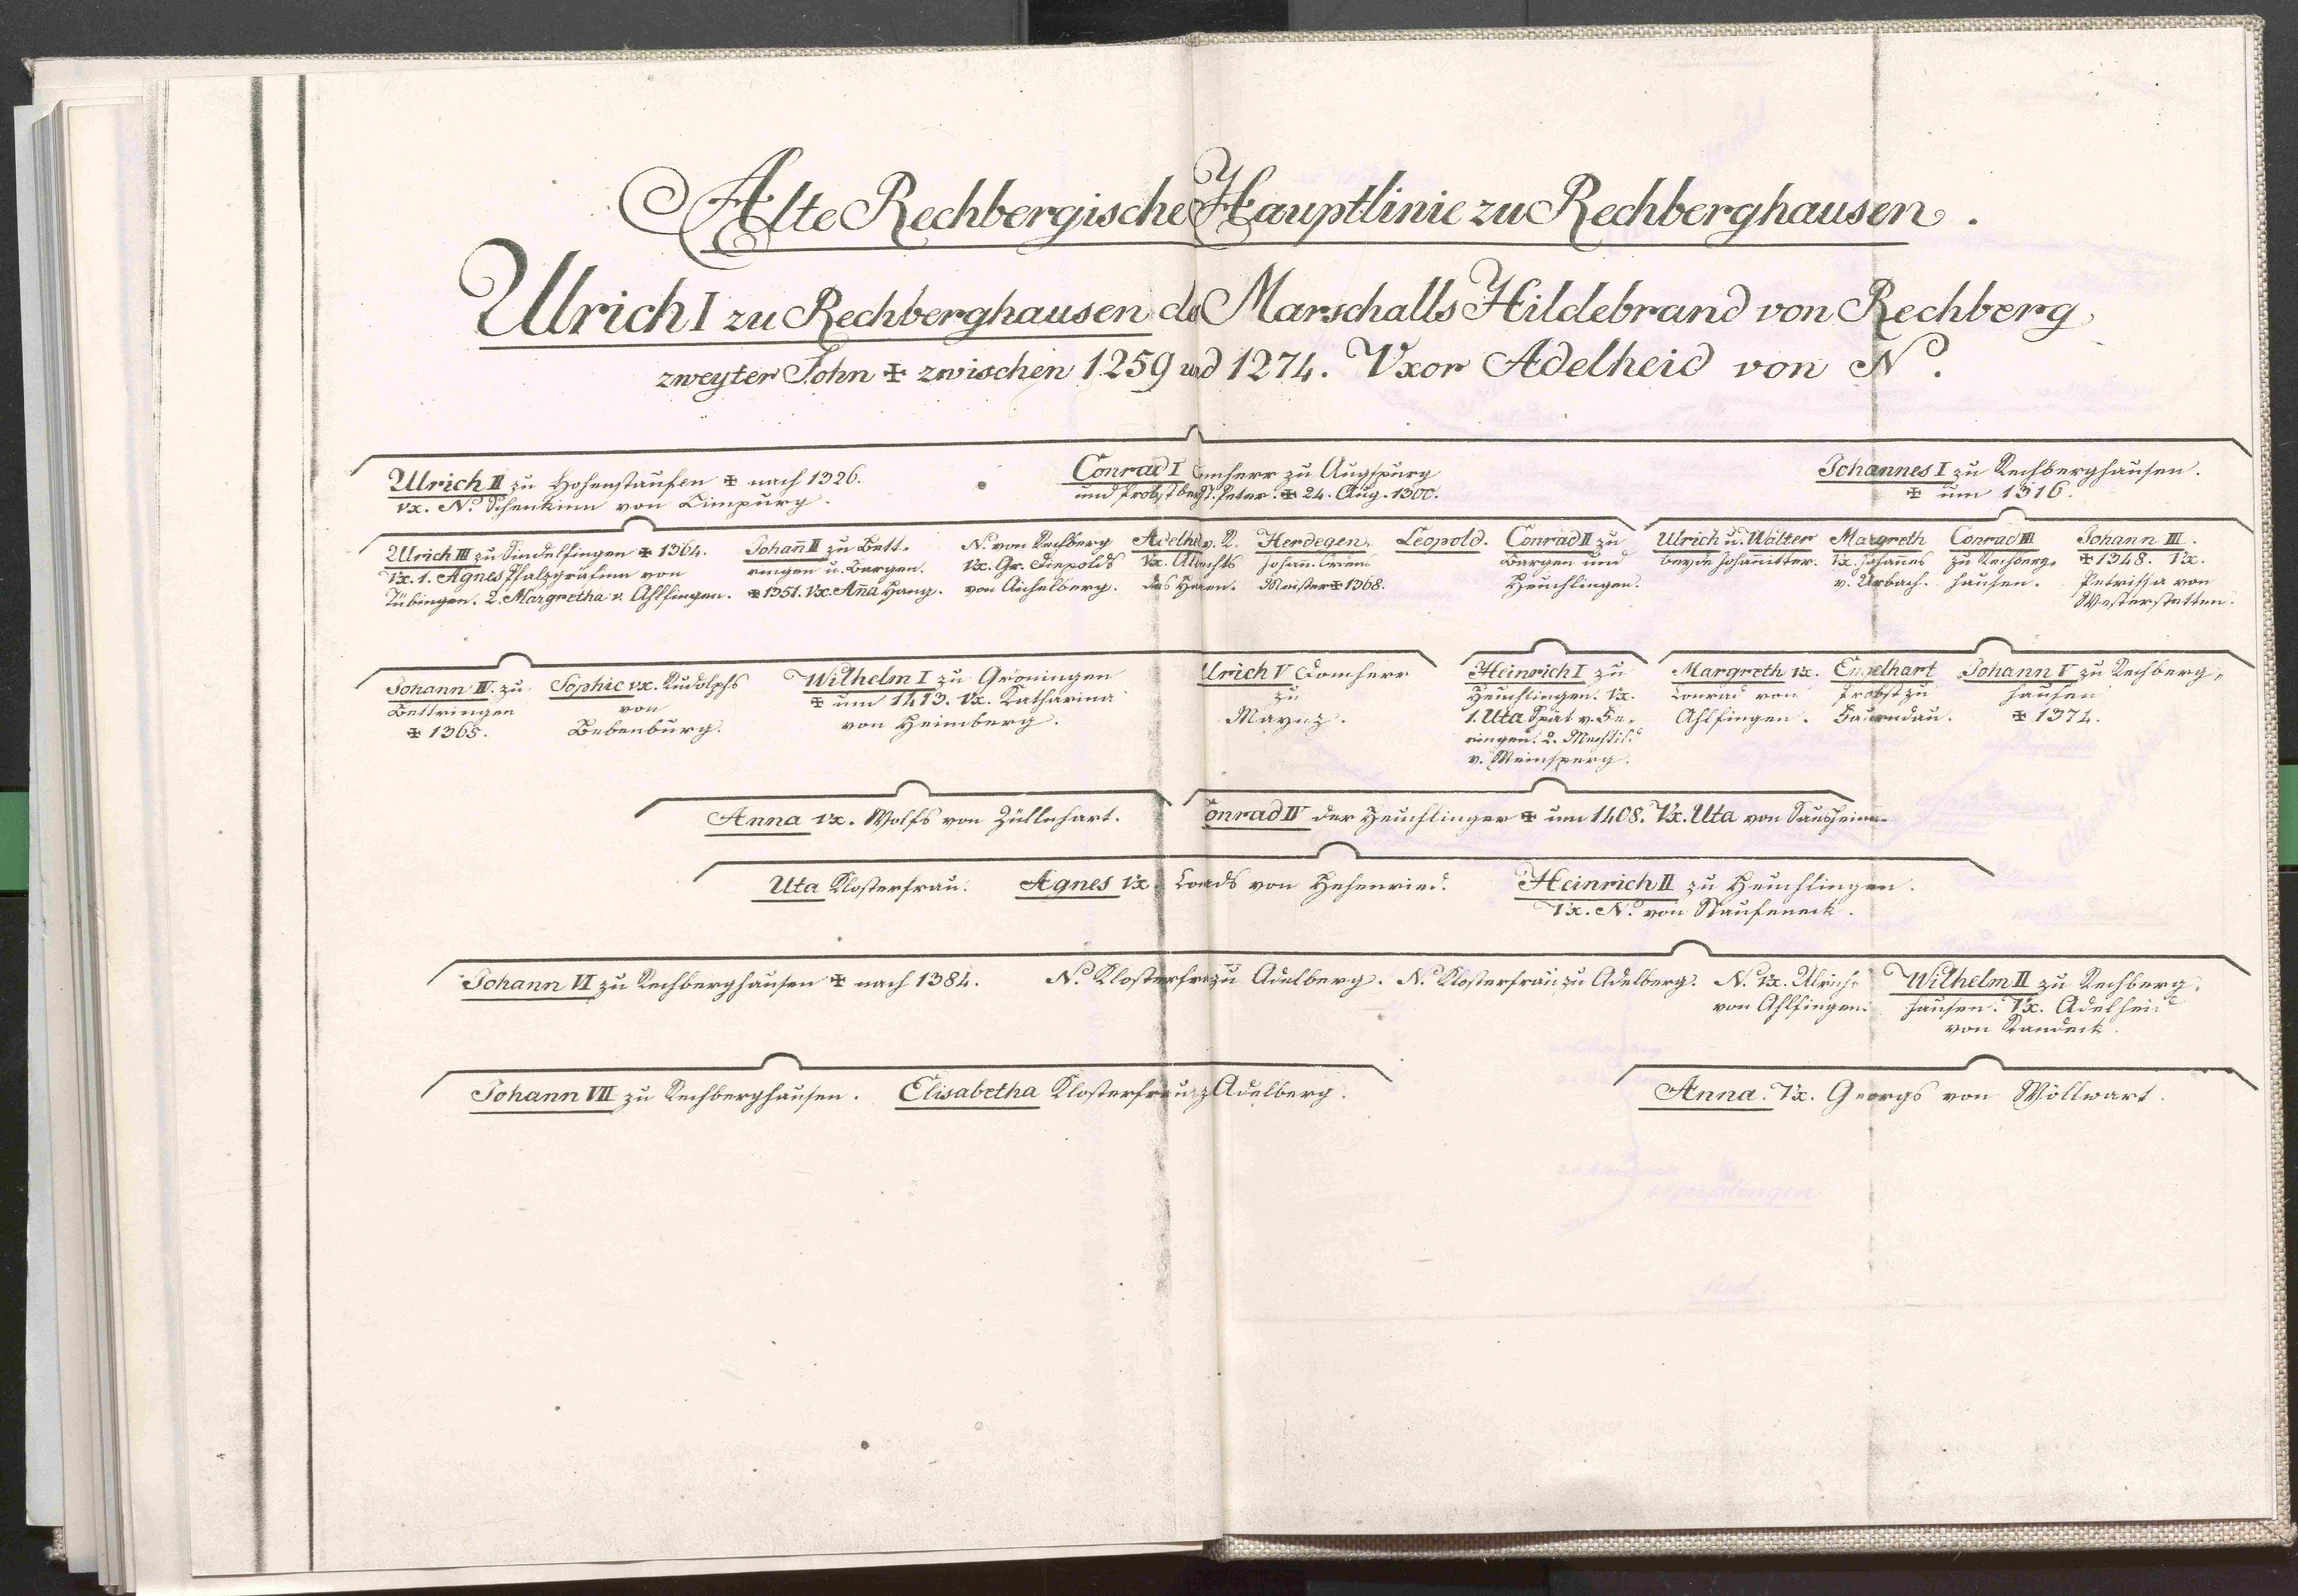 Alte Rechbergische Hauptlinie zu Rechberghausen.
Ulrich I zu Rechberghausen des Marschalls Hildebrand von Rechberg
zweyter Sohn ✠ zwischen 1259 und 1274. Vxor Adelheid von N.
Ulrich II zu Hohenstaufen ✠ nach 1326.
vx. N. Schenkinn von Limpurg.
Conrad I Domherr zu Augspurg
und Probst bey St. Peter. ✠ 24. Aug. 1300.
Johannes I zu Rechberghausen.
✠ um 1316.
Ulrich III zu Sindelfingen ✠ 1364.
Vx. 1. Agnes Pfalzgräfinn von
Tübingen. 2. Margretha v. Ahlfingen.
Johan̄ II zu Bett-
ringen u. Bargen.
✠ 1351. Vx. An̄a Hang.
N. von Rechberg
Vx. Gr. Diepolds
von Aichelberg.
Adelheid v. R.
Vx. Albrechts
des Haken.
Herdegen.
Johann. Ordens
Meister ✠ 1368.
Leopold.
Conrad II zu
Bargen und
Heuchlingen.
Ulrich u. Walter
beyde Johan̄itter.
Margreth
Vx. Johan̄es
v. Urbach.
Conrad III
zu Rechberg-
hausen.
Johann III.
✠ 1348. Vx.
Petrissa von
Westerstetten.
Johann IV. zu
Bettringen
✠ 1365.
Sophie vx. Rudolphs
von
Bebenburg.
Wilhelm I zu Gröningen
✠ um 1413. Vx. Katharina
von Heimberg.
Ulrich V Domherr
zu
Maynz.
Heinrich I zu
Heuchlingen. Vx.
1. Uta Spät v. Fe-
ringen. 2. Mechtild
v. Weinsperg.
Margreth vx.
Conrad von
Ahlfingen.
Engelhart
Probst zu
Faurndau.
Johann V zu Rechberg-
hausen
✠ 1374.
Anna vx. Wolfs von Züllnhart.
Conrad IV der Heuchlinger ✠ um 1408. Vx. Uta von Sausheim.
Uta Klosterfrau.
Agnes Vx. von Hehenried.
Heinrich II zu Heuchlingen.
Vx. N. von Staufeneck.
Johann VI zu Rechberghausen ✠ nach 1384.
N. Klosterfrau zu Adelberg.
N. Klosterfrau zu Adelberg.
N. Vx. Ulrichs
von Ahlfingen.
Wilhelm II zu Rechberg-
hausen. Vx. Adelheid
von Randeck.
Johann VII zu Rechberghausen.
Elisabetha Klosterfrau z. Adelberg.
Anna. Vx. Georgs von Wöllwart.